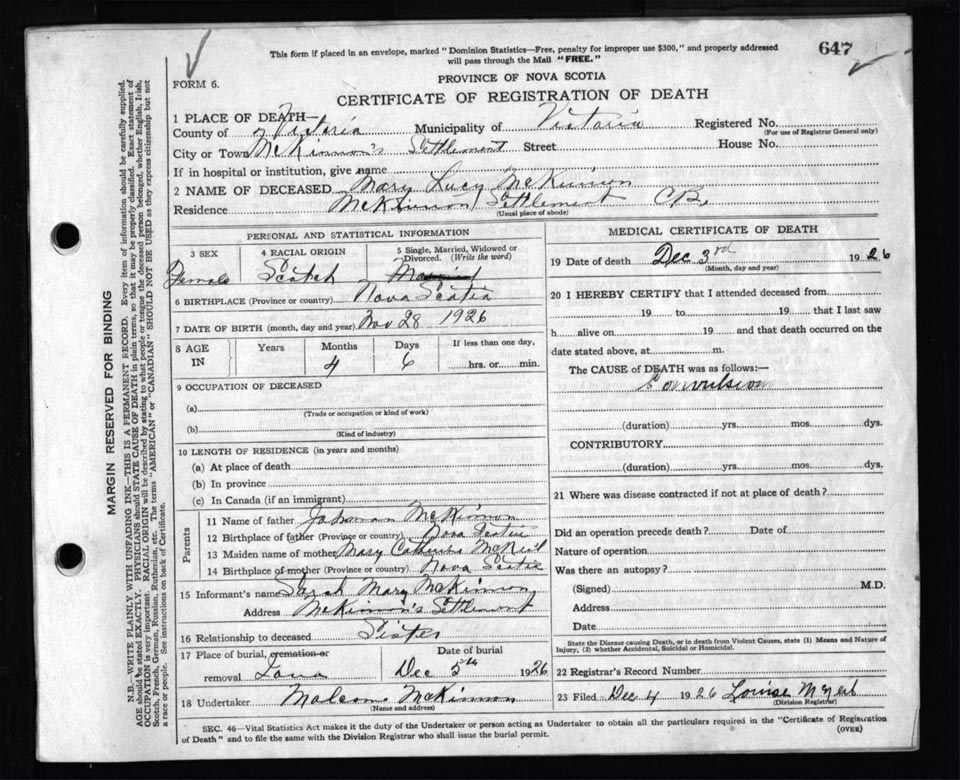 This form if placed in an envelope, marked "Dominion Statistics—Free, penalty for improper use $300," and properly addressed
will pass through the Mail "FREE."
647
FORM 6.
PROVINCE OF NOVA SCOTIA
CERTIFICATE OF REGISTRATION OF DEATH
1 PLACE OF DEATH—
County of Victoria Municipality of Victoria Registered No.
(For use of Registrar General only)
City or Town McKinnon's Settlement Street House No.
If in hospital or institution, give name
2 NAME OF DECEASED Mary Lucy McKinnon
Residence McKinnon Settlement C.B.
(Usual place of abode)
PERSONAL AND STATISTICAL INFORMATION
3 SEX 4 RACIAL ORIGIN 5 Single, Married, Widowed or Divorced. (Write the word)
Female Scotch
6 BIRTHPLACE (Province or country) Nova Scotia
7 DATE OF BIRTH (month, day and year) Nov 28 1926
8 AGE IN Years Months Days If less than one day,
4 6 hrs. or min.
9 OCCUPATION OF DECEASED
(a)
(Trade or occupation or kind of work)
(b)
(Kind of industry)
10 LENGTH OF RESIDENCE (in years and months)
(a) At place of death
(b) In province
(c) In Canada (if an immigrant)
Parents
11 Name of father McKinnon
12 Birthplace of father (Province or country) Nova Scotia
13 Maiden name of mother Mary Catherine McNeil
14 Birthplace of mother (Province or country) Nova Scotia
15 Informant's name Sarah Mary McKinnon
Address McKinnon's Settlement
16 Relationship to deceased Sister
17 Place of burial, cremation or Date of burial
removal Iona Dec 5th 1926
18 Undertaker Malcom McKinnon
(Name and address)
MEDICAL CERTIFICATE OF DEATH
19 Date of death Dec 3rd 1926
(Month, day and year)
20 I HEREBY CERTIFY that I attended deceased from
19 to 19 that I last saw
h alive on 19 and that death occurred on the
date stated above, at m.
The CAUSE of DEATH was as follows:—
Convulsion
(duration) yrs. mos. dys.
CONTRIBUTORY
(duration) yrs. mos. dys.
21 Where was disease contracted if not at place of death?
Did an operation precede death? Date of
Nature of operation
Was there an autopsy?
(Signed) M.D.
Address
Date
State the Disease causing Death, or in death from Violent Causes, state (1) Means and Nature of
Injury, (2) whether Accidental, Suicidal or Homicidal.
22 Registrar's Record Number
23 Filed Dec 4 1926 Louise McNeil
(Division Registrar)
SEC. 46—Vital Statistics Act makes it the duty of the Undertaker or person acting as Undertaker to obtain all the particulars required in the "Certificate of Registration
of Death" and to file the same with the Division Registrar who shall issue the burial permit.
(OVER)
MARGIN RESERVED FOR BINDING
N.B.—WRITE PLAINLY, WITH UNFADING INK—THIS IS A PERMANENT RECORD. Every item of information should be carefully supplied.
AGE should be stated EXACTLY. PHYSICIANS should STATE CAUSE OF DEATH in plain terms, so that it may be properly classified. Exact statement of
OCCUPATION is very important. RACIAL ORIGIN will be described by stating to what people or tongue the deceased person belonged, whether English, Irish,
Scotch, French, German, Russian, Ruthenian, etc. The terms "AMERICAN" or "CANADIAN" SHOULD NOT BE USED as they express citizenship but not
a race or people. See instructions on back of Certificate.